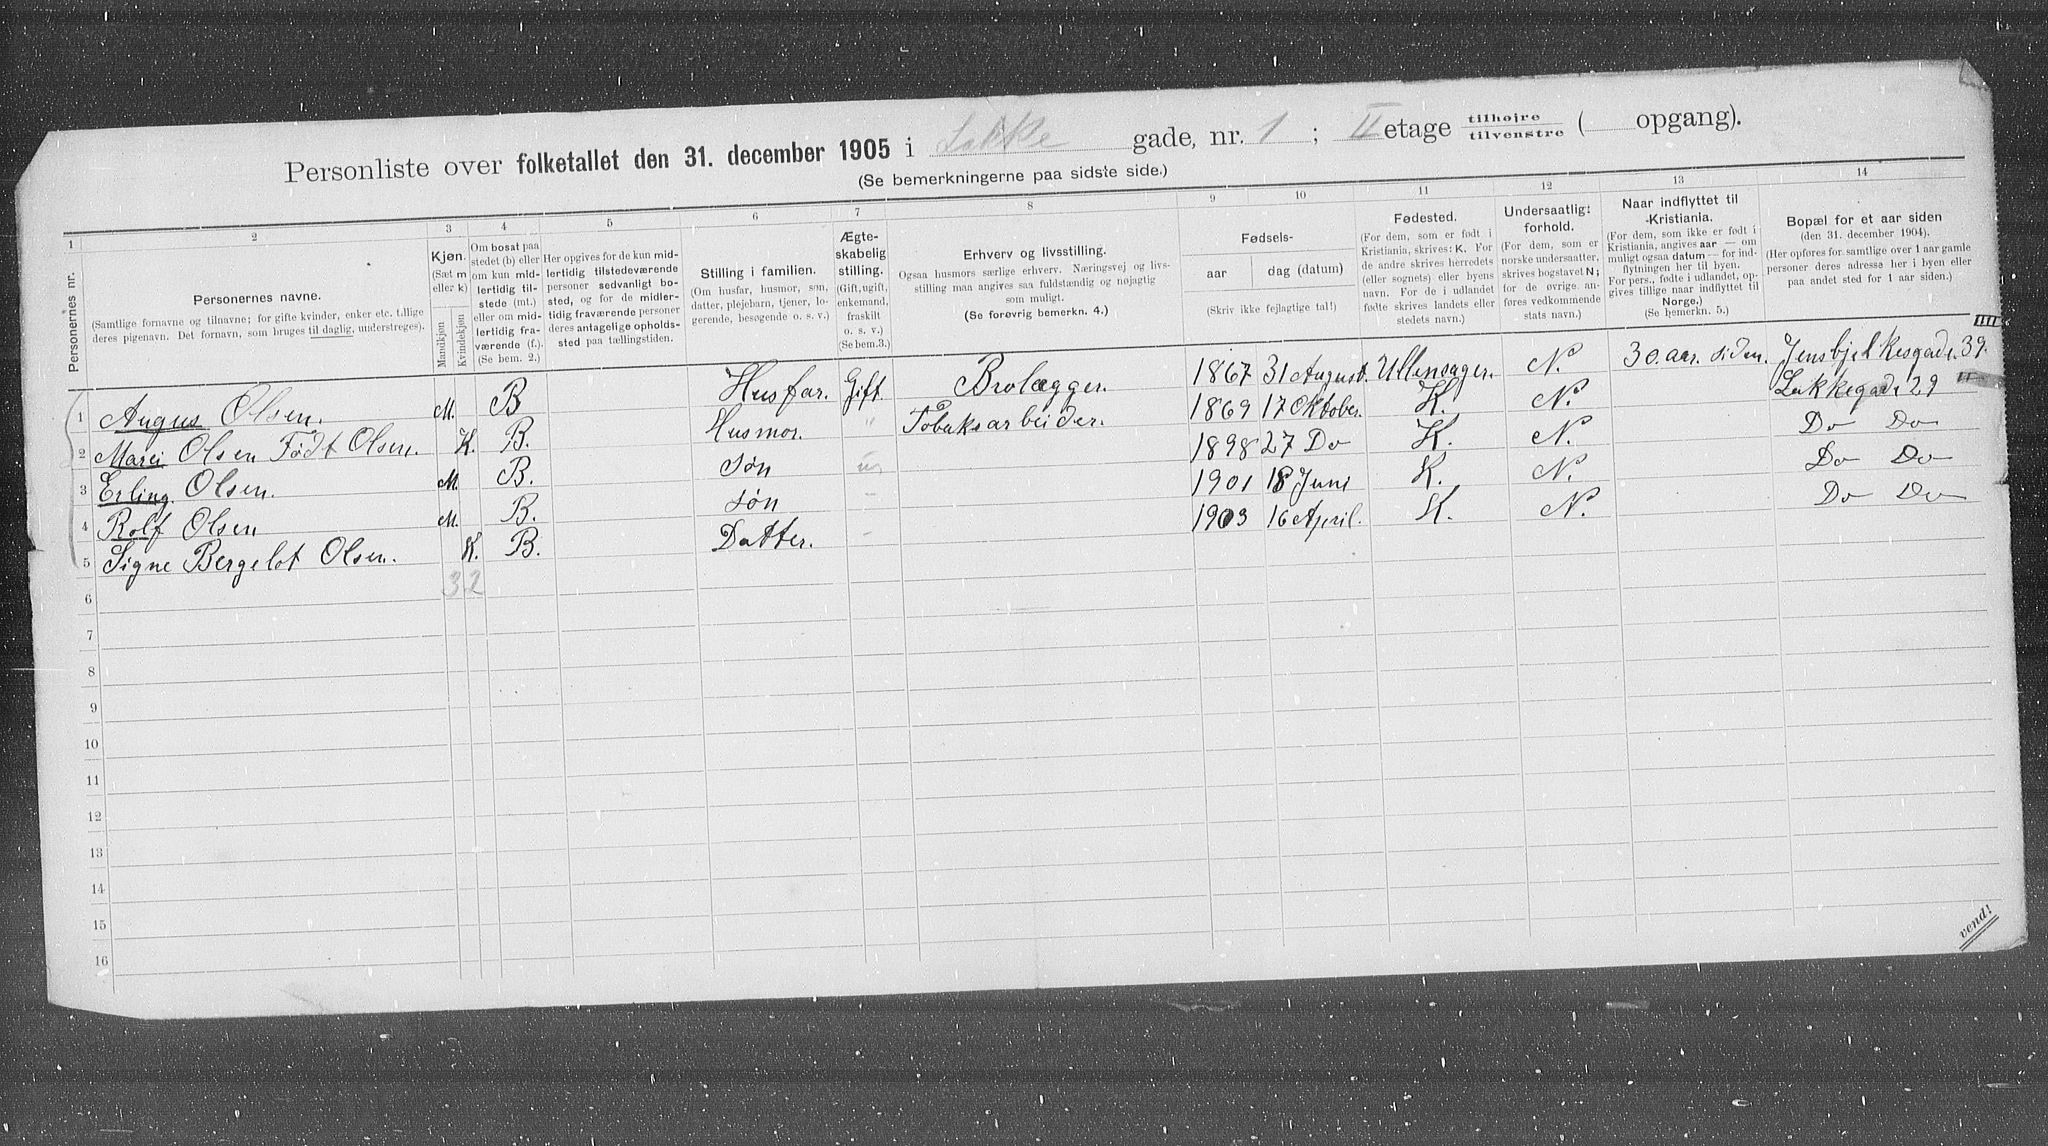 Personliste over folketallet den 31. december 1905 i Lakke gade, nr. 1 ; II etage tilhøjre tilvenstre ( opgang).
(Se bemerkningerne paa sidste side.)
1 2 3 4 5 6 7 8 9 10 11 12 13 14
Personernes nr.
Personernes navne.
(Samtlige fornavne og tilnavne; for gifte kvinder, enker etc. tillige
deres pigenavn. Det fornavn, som bruges til daglig, understreges).
Kjøn.
(Sæt m
eller k)
Mandkjøn
Kvindekjøn
Om bosat paa
stedet (b) eller
om kun mid-
lertidig til-
stede (mt.)
eller om mid-
lertidig fra-
værende (f.).
(Se bem. 2.)
Her opgives for de kun mid-
lertidig tilstedeværende
personer sedvanligt bo-
sted, og for de midler-
tidig fraværende personer
deres antagelige opholds-
sted paa tællingstiden.
Stilling i familien.
(Om husfar, husmor, søn,
datter, plejebarn, tjener, lo-
gerende, besøgende o. s. v.)
Ægte-
skabelig
stilling.
(Gift, ugift,
enkemand,
fraskilt
o. s. v.)
(Se bem.3.)
Erhverv og livsstilling.
Ogsaa husmors særlige erhverv. Næringsvej og livs-
stilling maa angives saa fuldstændig og nøjagtig
som muligt.
(Se forøvrig bemerkn. 4.)
Fødsels-
aar dag (datum)
(Skriv ikke fejlagtige tal!)
Fødested.
(For dem, som er født i
Kristiania, skrives: K. For
de andre skrives herredets
(eller sognets) eller byens
navn. For de i udlandet
fødte skrives landets eller
stedets navn.)
Undersaatligt
forhold.
(For dem, som er
norske undersaatter,
skrives bogstavet N;
for de øvrige. an-
føres vedkommende
stats navn.)
Naar indflyttet til
Kristiania.
(For dem, som ikke er født i
Kristiania, angives aar — om
muligt ogsaa datum — for ind-
flytningen her til byen.
For pers., fødte i udlandet, op-
gives tillige naar indflyttet til
Norge,)
(Se bemerkn. 5.)
Bopæl for et aar siden
(den 31. december 1904).
(Her opføres for samtlige over 1 aar gamle
personer deres adresse her i byen eller
paa andet sted for 1 aar siden.)
1 Augus Olsen. M. B Husfar. Gift. Brolægger. 1867 31 August. Ullensager. N. 30. aar. siden. Jensbjelkesgade. 39.
2 Marei Olsen Født Olsen. K. B. Husmor. " Tobaksarbeider. 1869 17 Oktober. K. N. Lakkegade 29
3 Erling. Olsen. M. B. søn 1898 27 Do K. N. Do Do
4 Rolf Olsen M. B. søn - 1901 18 Juni K. N. Do Do
5 Signe Bergelot Olsen. K. B. Datter. - 1903 16 April. K. N. Do Do
6 3 2
7
8
9
10
11
12
13
14
15
16
vend!